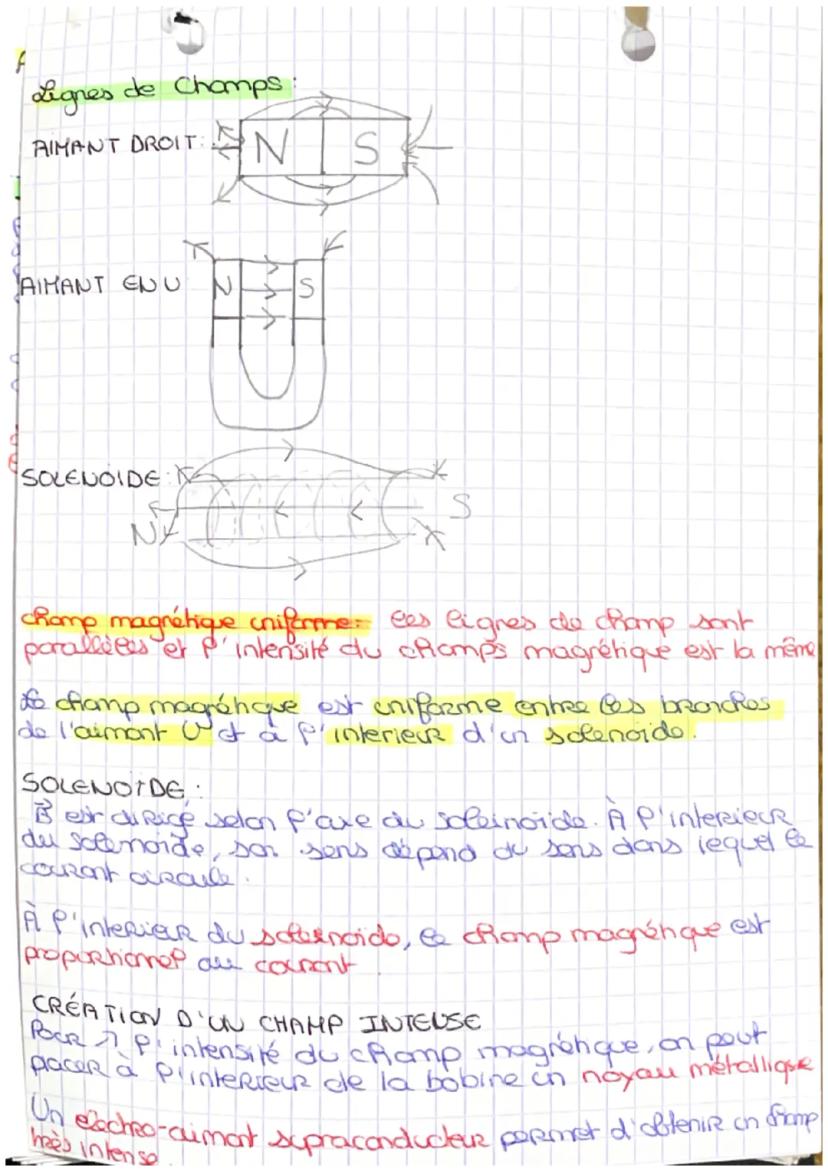 Lignes de Champs :
AIMANT DROIT: N S
AIMANT EN U N S
SOLENOIDE : S
N
champ magnétique uniforme: les lignes de champ sont
parallèles et l'intensité du champs magnétique est la même
Le champ magnétique est uniforme entre les branches
de l'aimant U et à l'interieur d'un solenoide.
SOLENOIDE :
B est dirigé selon l'axe du soleinoide. À l'interieur
du solenoïde, son sens dépend du sens dans lequel le
courant circule.
À l'interieur du solenoide, le champ magnétique est
proportionnel au courant
CRÉATION D'UN CHAMP INTENSE
Pour ↗ l'intensité du champ magnétique, on peut
placer à l'interieur de la bobine un noyau métallique
Un electro-aimant supraconducteur permet d'obtenir un champ
très intense